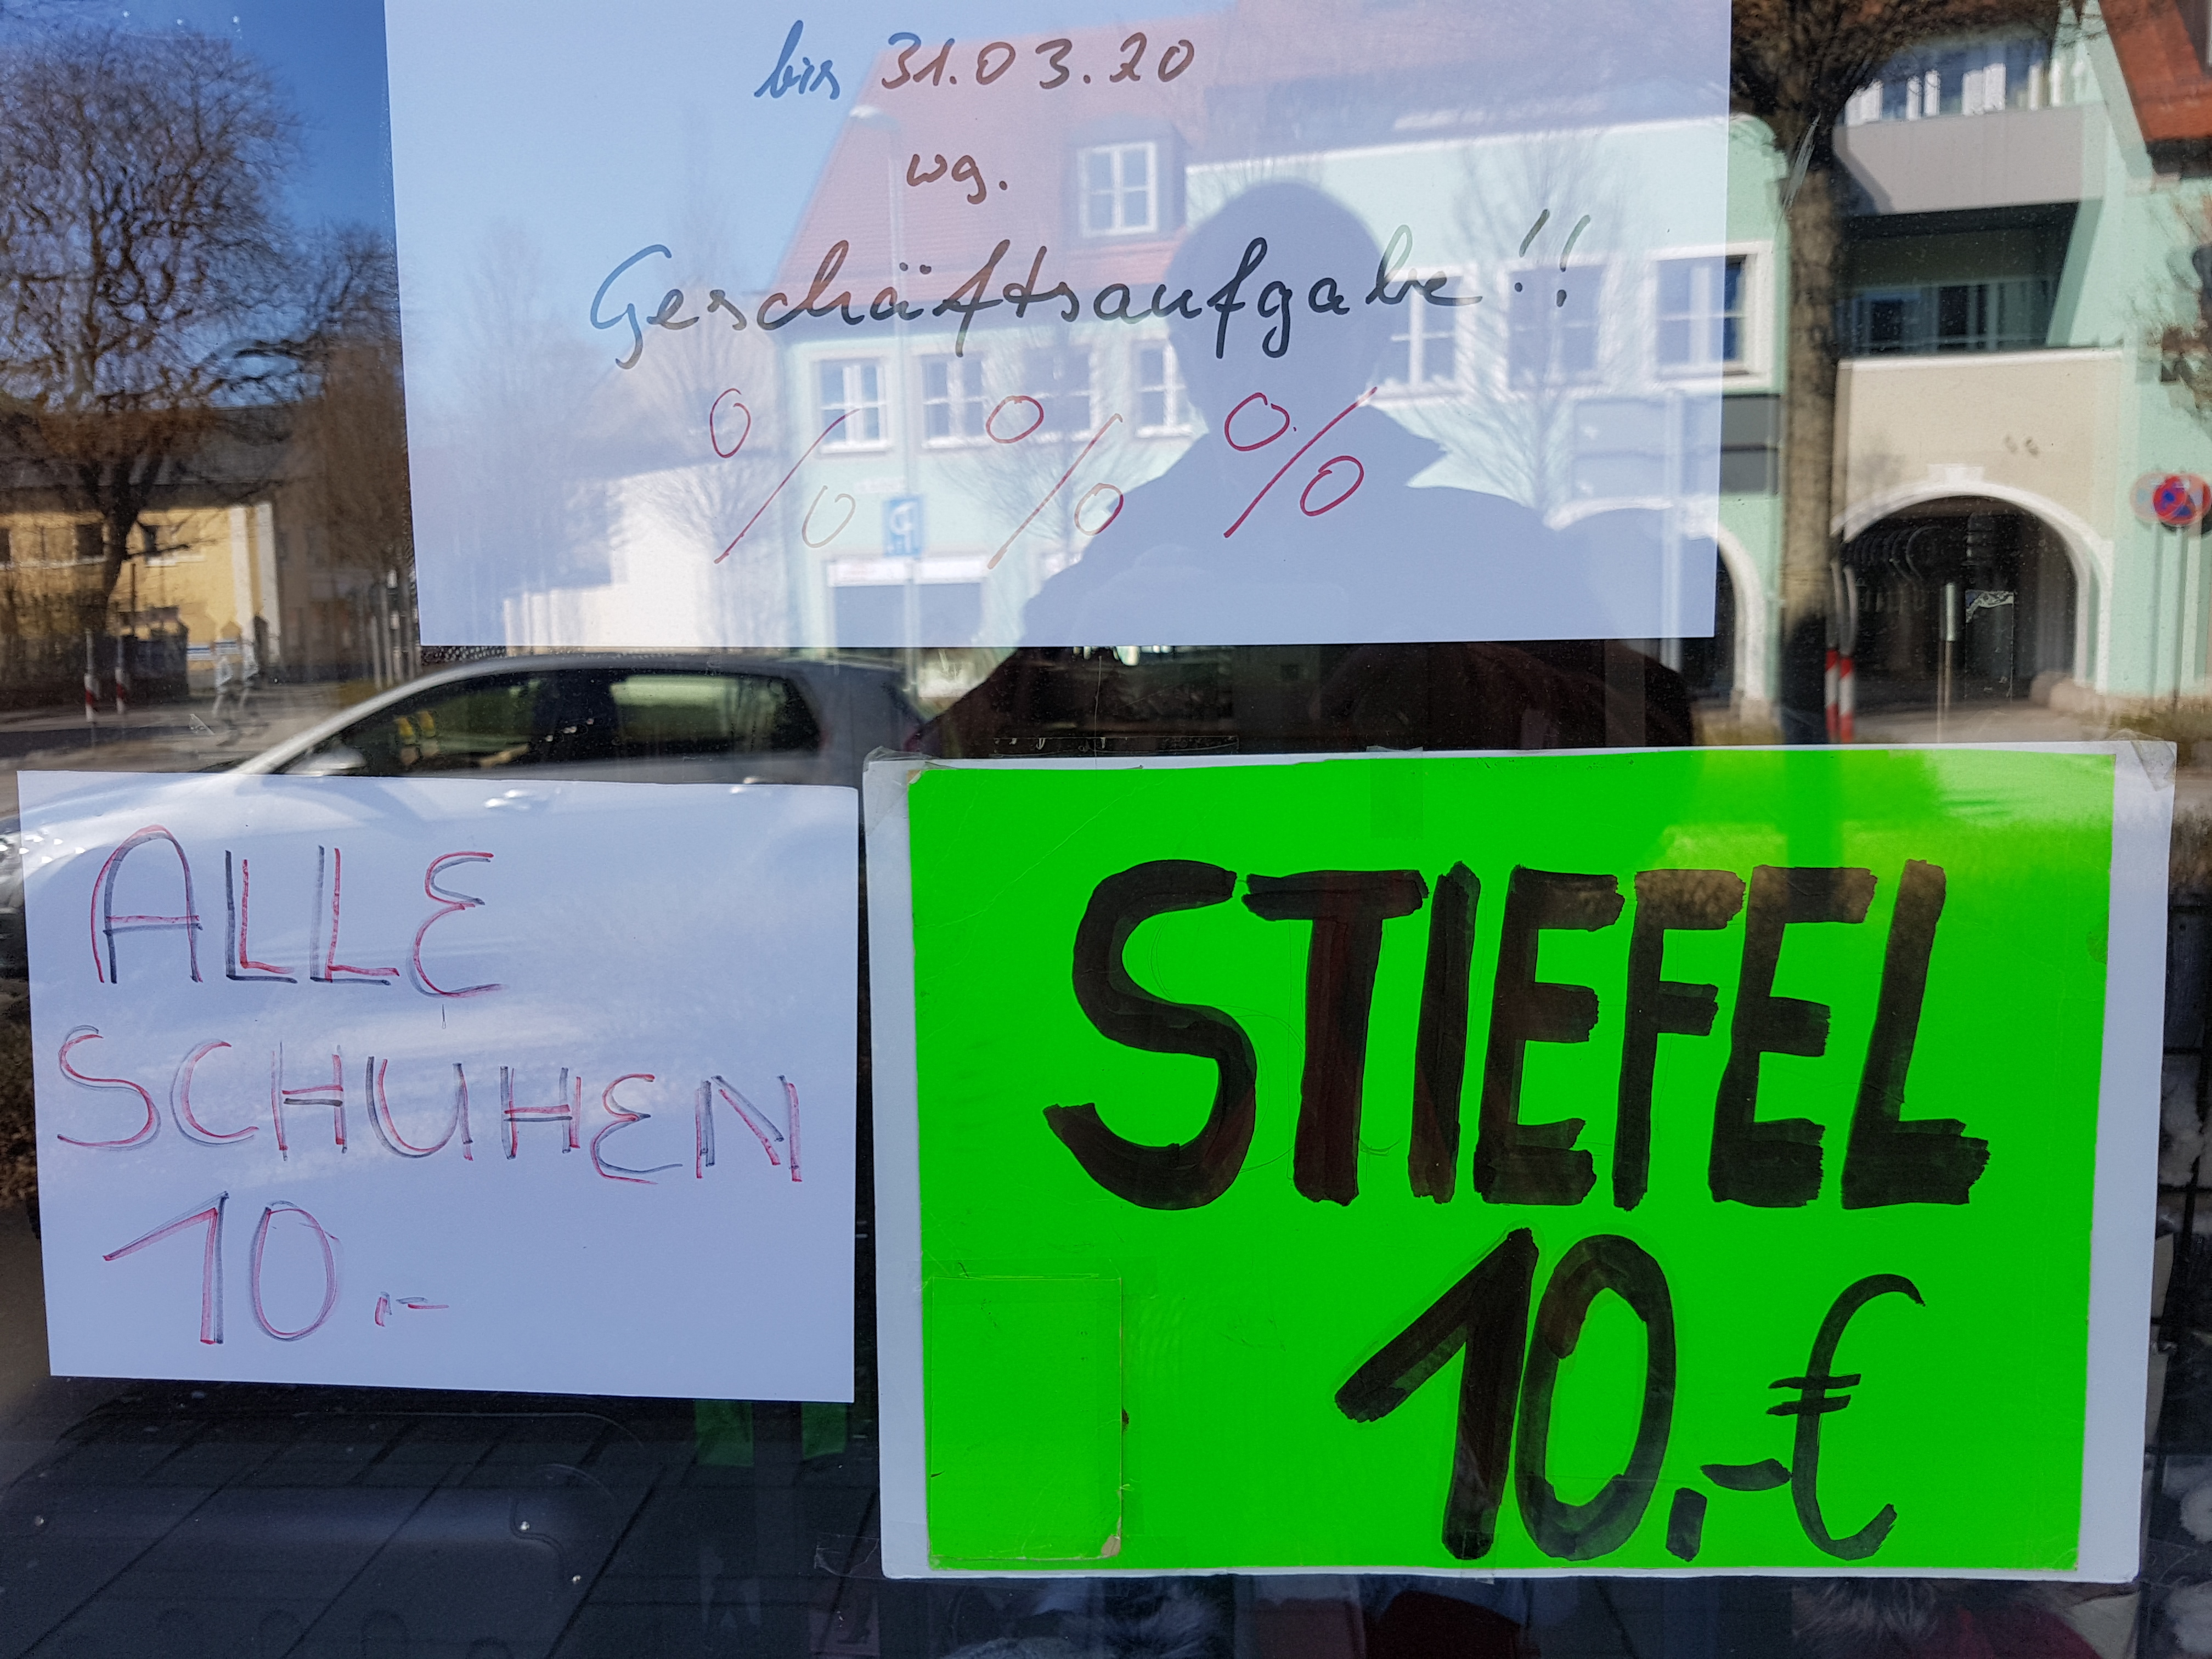 bis 31.03.20
wg.
Geschäftsaufgabe!!
% % %
ALLE
SCHUHEN
10.-
STIEFEL
10,-€